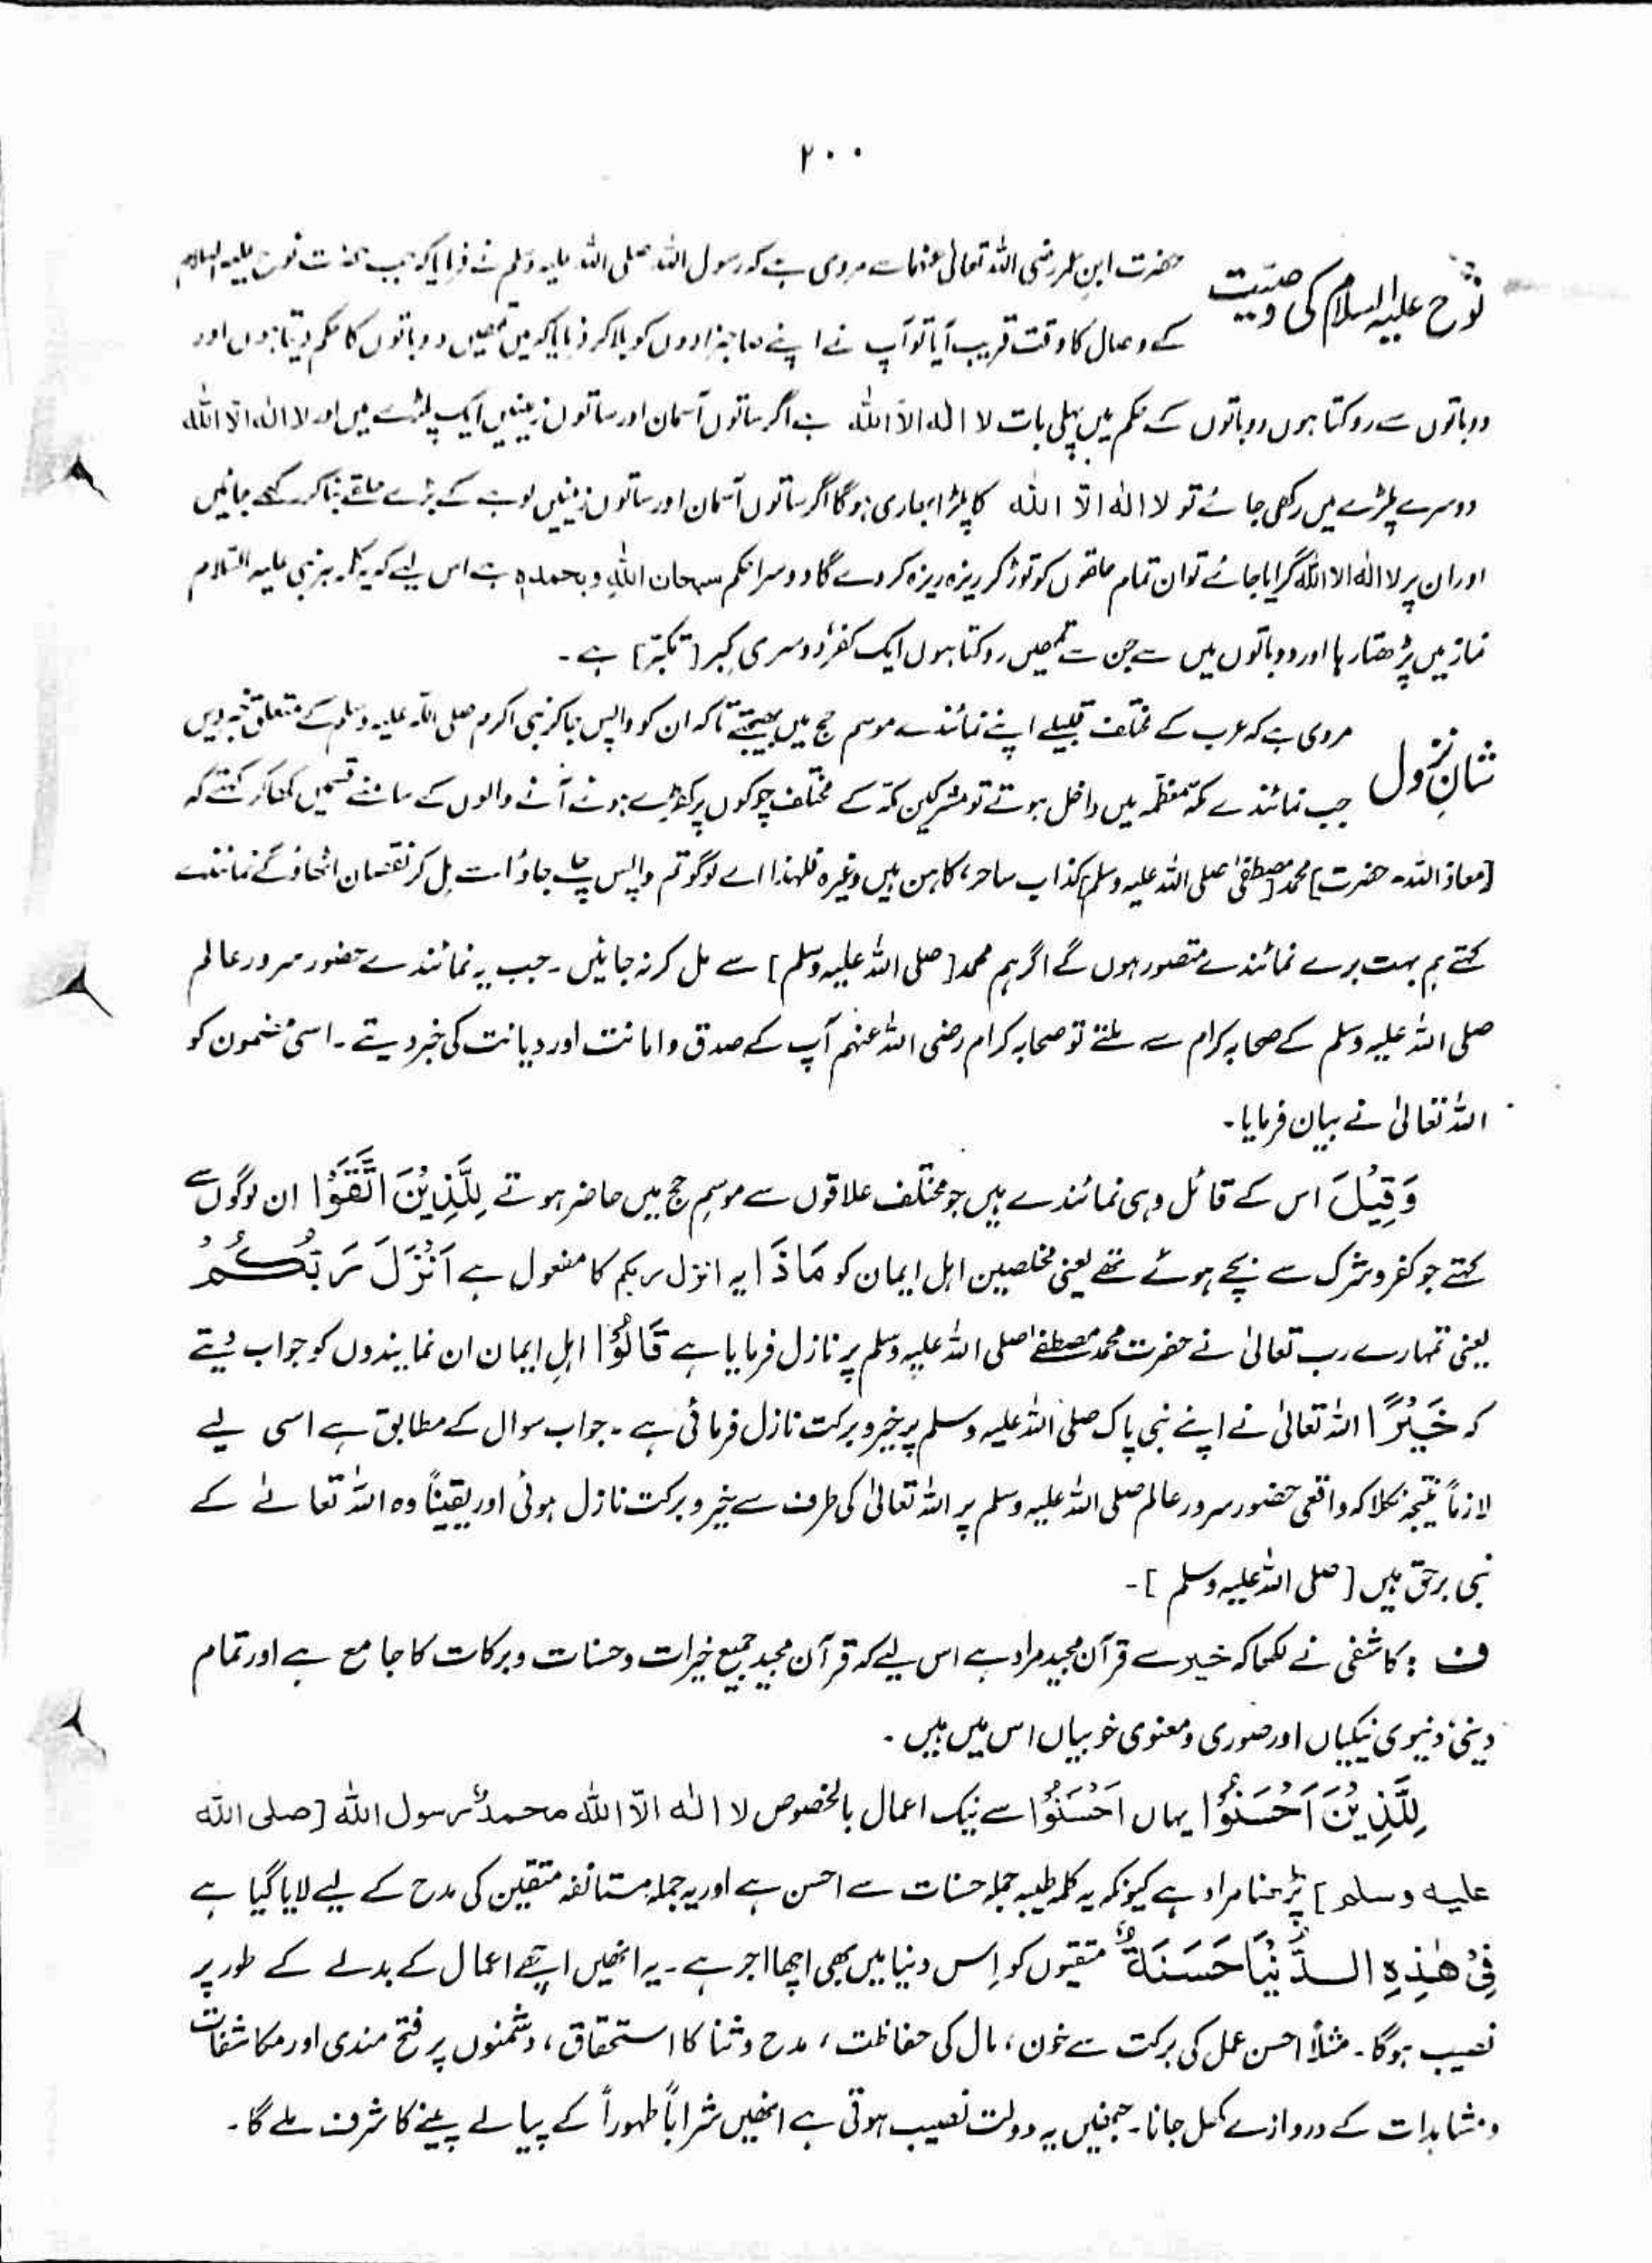 ۲۰۰
نوح علیہ السلام کی وصیت
حضرت ابن عمر رضی اللہ تعالیٰ عنہما سے مروی ہے کہ رسول اللہ صلی اللہ علیہ وسلم نے فرمایا کہ جب حضرت نوح علیہ السلام
کے وصال کا وقت قریب آیا تو آپ نے اپنے صاحبزادوں کو بلا کر فرمایا کہ میں تمھیں دو باتوں کا حکم دیتا ہوں اور
دو باتوں سے روکتا ہوں دو باتوں کے حکم میں پہلی بات لا الٰہ الاّ اللہ ہے اگر ساتوں آسمان اور ساتوں زمینیں ایک پلڑے میں اور لا الٰہ الاّ اللہ
دوسرے پلڑے میں رکھی جائے تو لا الٰہ الاّ اللہ کا پلڑا بھاری ہوگا اگر ساتوں آسمان اور ساتوں زمینیں لوہے کے بڑے حلقے بنا کر رکھے جائیں
اور ان پر لا الٰہ الا اللہ گرایا جائے تو ان تمام حلقوں کو توڑ کر ریزہ ریزہ کر دے گا دوسرا حکم سبحان اللہِ وبحمدہٖ ہے اس لیے کہ یہ کلمہ ہر نبی علیہ السلام
نماز میں پڑھتا رہا اور دو باتوں میں سے جن سے تمھیں روکتا ہوں ایک کفر، دوسری کبر [تکبّر] ہے ۔
شانِ نزول
مروی ہے کہ عرب کے مختلف قبیلے اپنے نمائندے موسم حج میں بھیجتے تاکہ ان کو واپس جا کر نبی اکرم صلی اللہ علیہ وسلم کے متعلق خبر دیں
جب نمائندے مکہ معظمہ میں داخل ہوتے تو مشرکین مکہ کے مختلف چوکوں پر کھڑے ہوئے آنے والوں کے سامنے قسمیں کھا کر کہتے کہ
[معاذ اللہ ۔ حضرت] محمد [مصطفیٰ صلی اللہ علیہ وسلم] کذاب ساحر، کاہن ہیں وغیرہ فلہٰذا اے لوگو تم واپس چلے جاؤ اُسے مل کر نقصان اٹھاؤ گے نمائندے
کہتے ہم بہت برے نمائندے متصور ہوں گے اگر ہم محمد [صلی اللہ علیہ وسلم] سے مل کر نہ جائیں ۔ جب یہ نمائندے حضور سرور عالم
صلی اللہ علیہ وسلم کے صحابہ کرام سے ملتے تو صحابہ کرام رضی اللہ عنہم آپ کے صدق و امانت اور دیانت کی خبر دیتے ۔ اسی مضمون کو
اللہ تعالیٰ نے بیان فرمایا ۔
وَقِیْلَ اس کے قائل وہی نمائندے ہیں جو مختلف علاقوں سے موسم حج میں حاضر ہوتے لِلَّذِیْنَ اتَّقَوْا ان لوگوں سے
کہتے جو کفر و شرک سے بچے ہوئے تھے یعنی مخلصین اہل ایمان کو مَاذَا یہ انزل ربکم کا مفعول ہے اَنْزَلَ رَبُّکُمْ
یعنی تمہارے رب تعالیٰ نے حضرت محمد مصطفےٰ صلی اللہ علیہ وسلم پر نازل فرمایا ہے قَالُوْا اہلِ ایمان ان نمایندوں کو جواب دیتے
کہ خَیْرًا اللہ تعالیٰ نے اپنے نبی پاک صلی اللہ علیہ وسلم پر خیر و برکت نازل فرمائی ہے ۔ جواب سوال کے مطابق ہے اسی لیے
لازماً نتیجہ نکلا کہ واقعی حضور سرور عالم صلی اللہ علیہ وسلم پر اللہ تعالیٰ کی طرف سے خیر و برکت نازل ہوئی اور یقیناً وہ اللہ تعالےٰ کے
نبی برحق ہیں [صلی اللہ علیہ وسلم] ۔
ف : کاشفی نے لکھا کہ خیر سے قرآن مجید مراد ہے اس لیے کہ قرآن مجید جمیع خیرات و حسنات و برکات کا جامع ہے اور تمام
دینی دنیوی نیکیاں اور صوری و معنوی خوبیاں اس میں ہیں ۔
لِلَّذِیْنَ اَحْسَنُوْا یہاں اَحْسَنُوْا سے نیک اعمال بالخصوص لا الٰہ الاّ اللہ محمدٌ رسول اللہ [صلی اللہ
علیہ وسلم] پڑھنا مراد ہے کیونکہ یہ کلمہ طیبہ جملہ حسنات سے احسن ہے اور یہ جملہ مستانفہ متقین کی مدح کے لیے لایا گیا ہے
فِیْ ھٰذِہِ الدُّنْیَا حَسَنَۃٌ متقیوں کو اِس دنیا میں بھی اچھا اجر ہے ۔ یہ انھیں اچھے اعمال کے بدلے کے طور پر
نصیب ہوگا ۔ مثلاً احسن عمل کی برکت سے خون ، مال کی حفاظت ، مدح و ثنا کا استحقاق ، دشمنوں پر فتح مندی اور مکاشفات
و مشاہدات کے دروازے کھل جانا ۔ جنھیں یہ دولت نصیب ہوتی ہے انھیں شراباً طہوراً کے پیالے پینے کا شرف ملے گا ۔